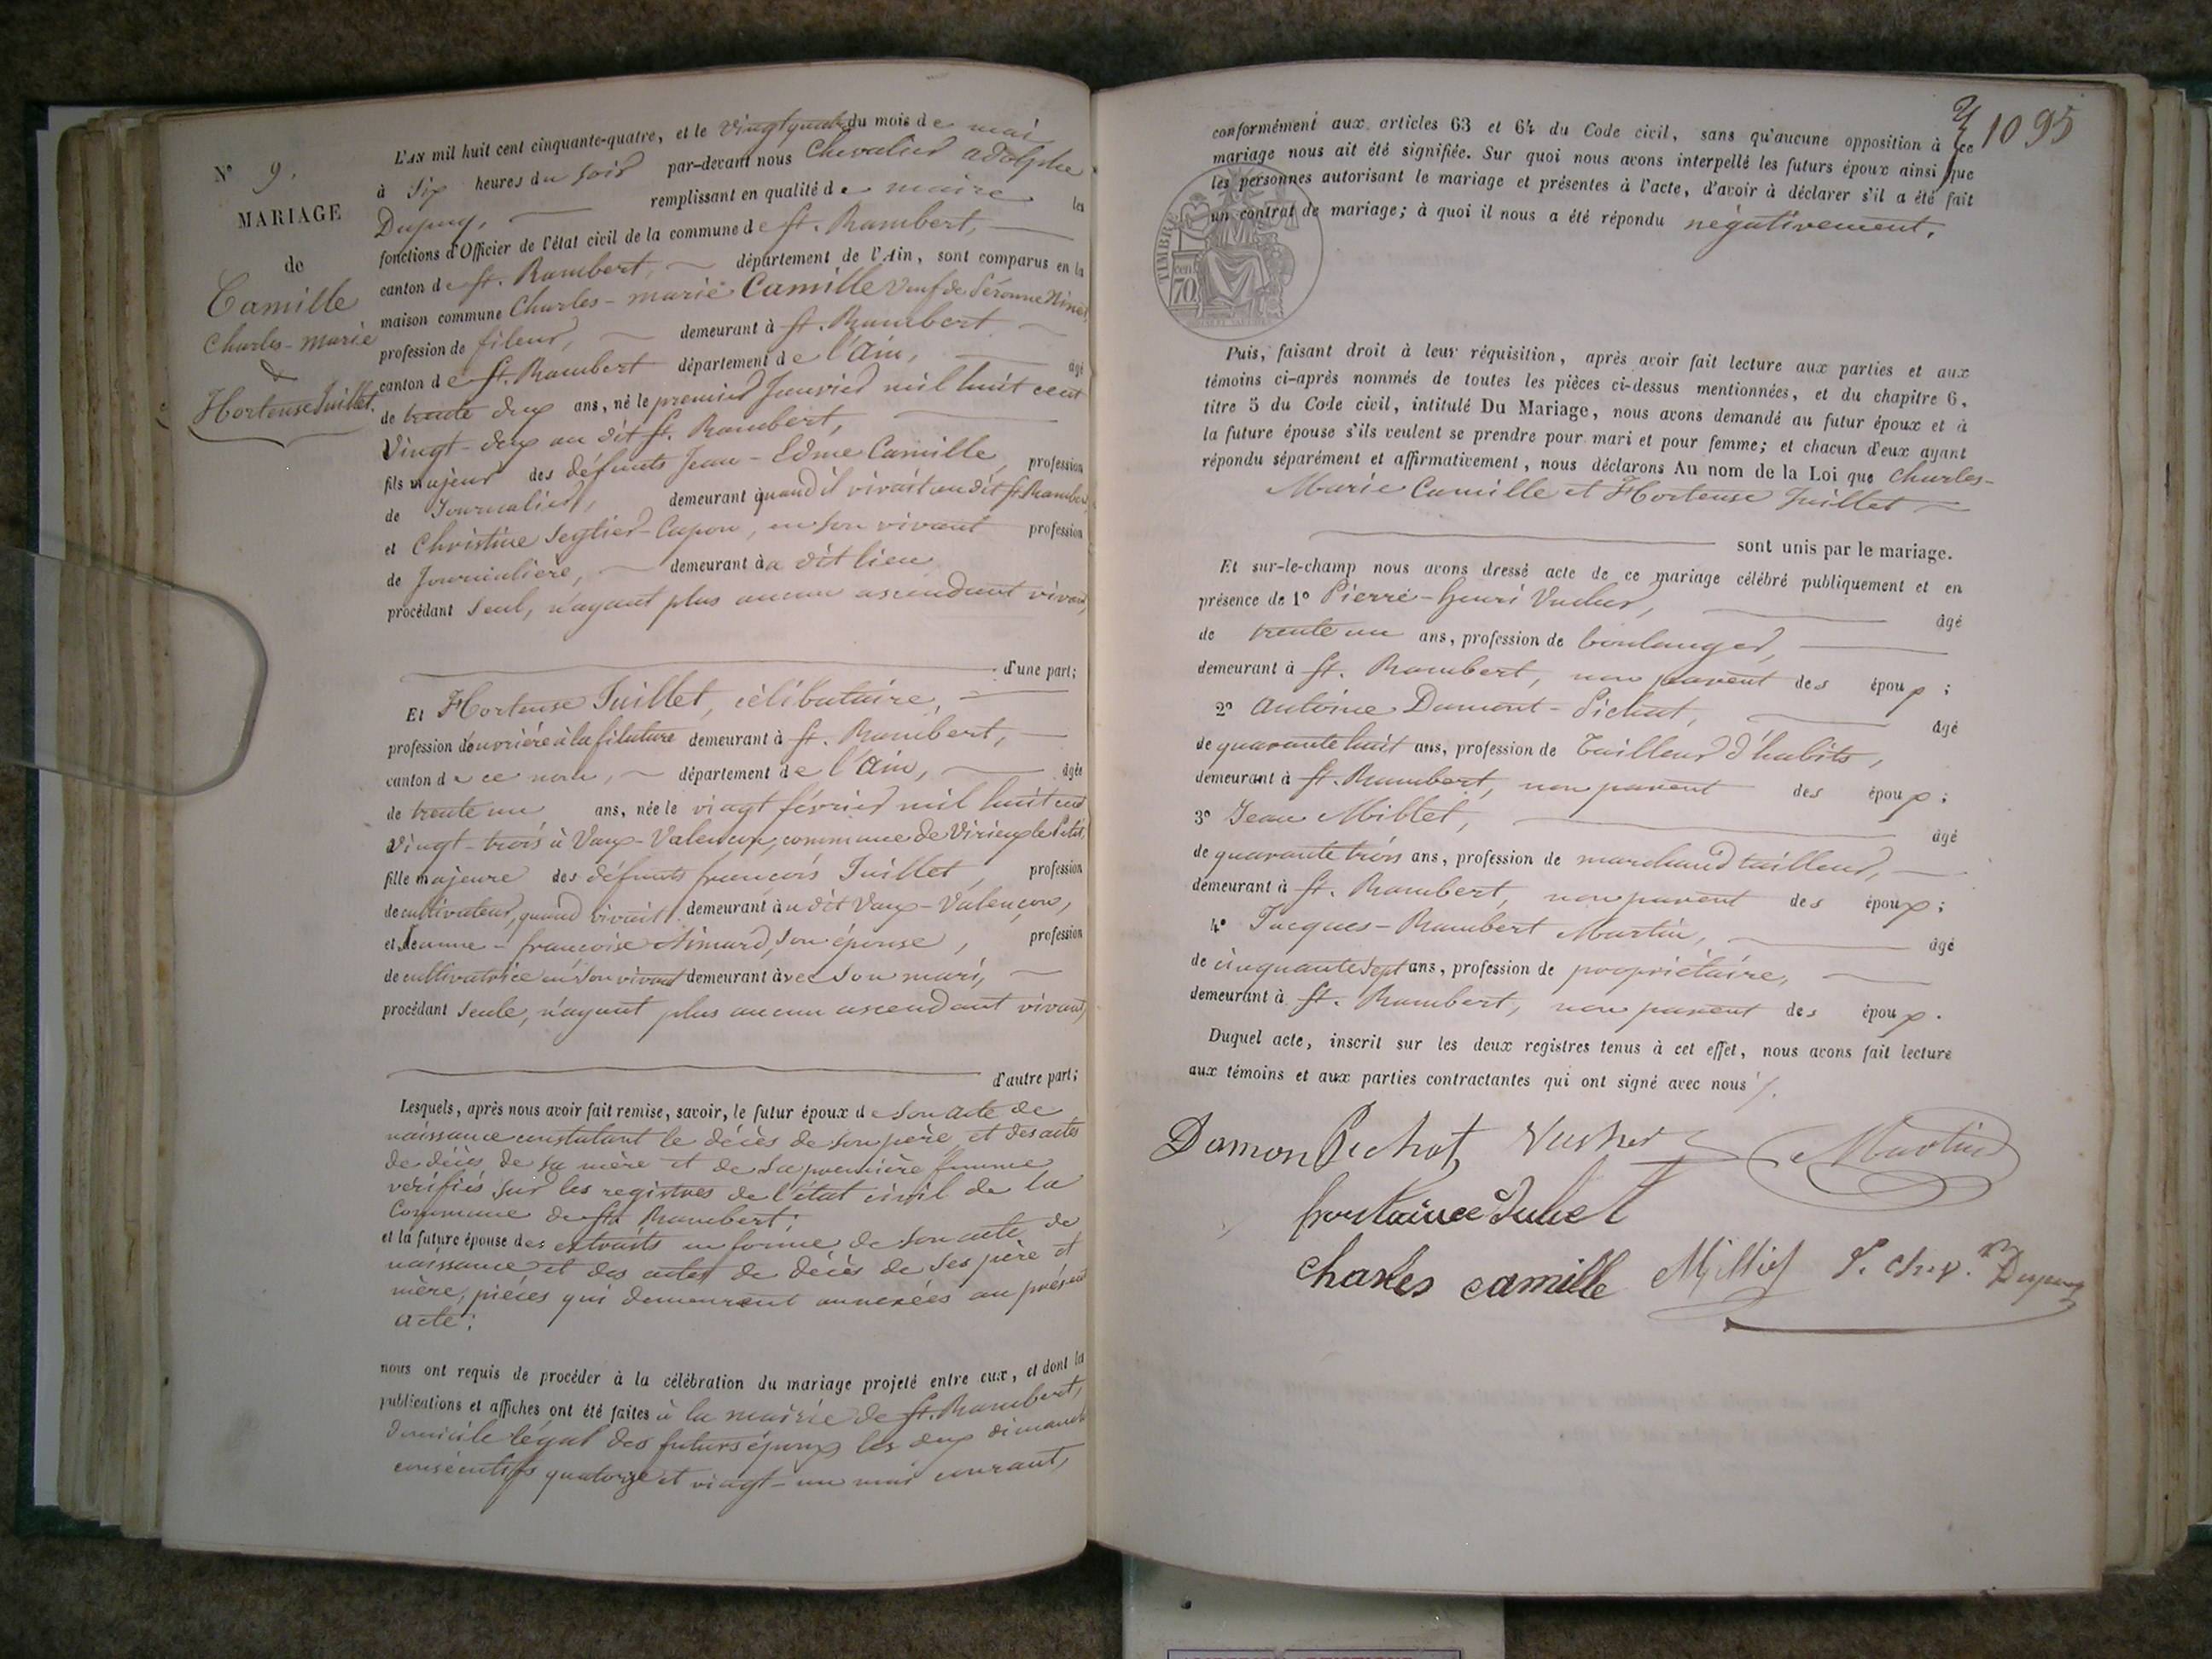 N° 9.
MARIAGE
de
Camille
Charles-marie
&
Hortense Juillet.
L'AN mil huit cent cinquante-quatre, et le vingtquatre du mois de mai
à Six heures du soir par-devant nous Chevalier adolphe
Dupuy, remplissant en qualité de maire les
fonctions d'Officier de l'état civil de la commune de St. Rambert,
canton de St. Rambert, département de l'Ain, sont comparus en la
maison commune Charles-marie Camille veuf de
profession de fileur, demeurant à St. Rambert
canton de St. Rambert département de l'Ain, âgé
de trente deux ans, né le premier Janvier mil huit cent
Vingt-deux au dit St. Rambert,
fils majeur des défunts Jean-Edme Camille, profession
de Journalier, demeurant quand il vivait au dit St. Rambert
et Christine Seytier-Capon, en son vivant profession
de Journalière, demeurant au dit lieu
procédant seul, n'ayant plus aucun ascendant vivant,
d'une part;
Et Hortense Juillet, célibataire,
profession d'ouvrière à la filature demeurant à St. Rambert,
canton de ce nom, département de l'Ain, âgée
de trente un ans, née le vingt février mil huit cent
vingt-trois à Vaux-Valençon, commune de Virieu le Petit,
fille majeure des défunts françois Juillet, profession
de cultivateur, quand vivait demeurant au dit Vaux-Valençon,
et Jeanne-françoise Aimard, son épouse, profession
de cultivatrice en son vivant demeurant avec son mari,
procédant seule, n'ayant plus aucun ascendant vivant,
d'autre part;
Lesquels, après nous avoir fait remise, savoir, le futur époux de son acte de
naissance constatant le décès de son père et des actes
de décès de sa mère et de sa première femme
vérifiés sur les registres de l'état civil de la
Commune de St. Rambert;
et la future épouse des extraits en forme de son acte de
naissance et des actes de décès de ses père et
mère, pièces qui demeurent annexées au présent
acte;
nous ont requis de procéder à la célébration du mariage projeté entre eux, et dont les
publications et affiches ont été faites à la mairie de St. Rambert,
domicile légal des futurs époux les deux dimanches
consécutifs quatorze et vingt-un mai courant,
1095
conformément aux articles 63 et 64 du Code civil, sans qu'aucune opposition à ce
mariage nous ait été signifiée. Sur quoi nous avons interpellé les futurs époux ainsi que
les personnes autorisant le mariage et présentes à l'acte, d'avoir à déclarer s'il a été fait
un contrat de mariage; à quoi il nous a été répondu négativement.
TIMBRE
cen
70
Puis, faisant droit à leur réquisition, après avoir fait lecture aux parties et aux
témoins ci-après nommés de toutes les pièces ci-dessus mentionnées, et du chapitre 6,
titre 5 du Code civil, intitulé Du Mariage, nous avons demandé au futur époux et à
la future épouse s'ils veulent se prendre pour mari et pour femme; et chacun d'eux ayant
répondu séparément et affirmativement, nous déclarons Au nom de la Loi que Charles-
Marie Camille et Hortense Juillet
sont unis par le mariage.
Et sur-le-champ nous avons dressé acte de ce mariage célébré publiquement et en
présence de 1° Pierre-henri Vucher, âgé
de trente un ans, profession de boulanger,
demeurant à St. Rambert, non parent des époux;
2° Antoine Damont-Pichat, âgé
de quarante huit ans, profession de Tailleur d'habits,
demeurant à St. Rambert, non parent des époux;
3° Jean Milliet, âgé
de quarante trois ans, profession de marchand tailleur,
demeurant à St. Rambert, non parent des époux;
4° Jacques-Rambert Martin, âgé
de cinquante sept ans, profession de propriétaire,
demeurant à St. Rambert, non parent des époux.
Duquel acte, inscrit sur les deux registres tenus à cet effet, nous avons fait lecture
aux témoins et aux parties contractantes qui ont signé avec nous /.
Damon Pichat Vucher Martin
Juliet
Charles camille Milliet Dupuy